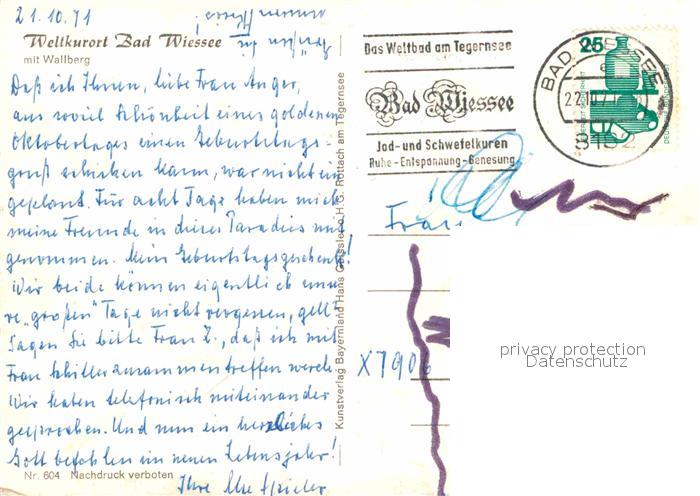 21.10.71
Weltkurort Bad Wiessee
mit Wallberg
Daß ich Ihnen, liebe Frau Anger,
aus soviel Schönheit eines goldenen
Oktobertages einen Geburtstags-
gruß schicken kann, war nicht ein
geplant. Für acht Tage haben mich
meine Freunde in dieses Paradies mit
genommen. Mein Geburtstagsgeschenk!
Wir beide können eigentlich unse
re „großen" Tage nicht vergessen, gell?
Sagen Sie bitte Frau Z., daß ich mit
Frau Schiller zusammentreffen werde.
Wir haben telefonisch miteinander
gesprochen. Und nun ein herzliches
Gott befohlen im neuen Lebensjahr!
Nr. 604 Nachdruck verboten
Ihre
Kunstverlag Bayermland Hans H.G. Rottach am Tegernsee
Das Weltbad am Tegernsee
Bad Wiessee
Jod- und Schwefelkuren
Ruhe-Entspannung-Genesung
BAD WIESSEE
22.10.71
8182
25
Frau
X7906
privacy protection
Datenschutz